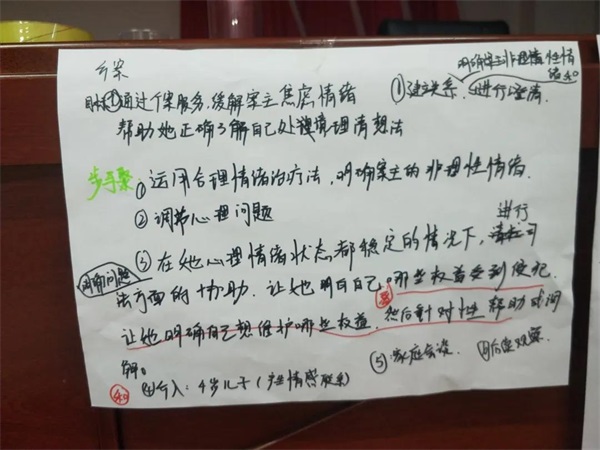 个案
明确案主非理性情绪和
①建立关系. 进行澄清.
目标①通过个案服务,缓解案主焦虑情绪
帮助她正确了解自己处理情理清想法
步骤 ①运用合理情绪治疗法,明确案主的非理性情绪.
②调节心理问题
③在她心理情绪状态都稳定的情况下,进行司
明确问题
法方面的协助.让她明白自己哪些权益受到侵犯.
让她明确自己想维护哪些权益.然后针对性帮助
解。
④介入:4岁儿子(情感联系)
⑤:家庭会谈. 后续观察.